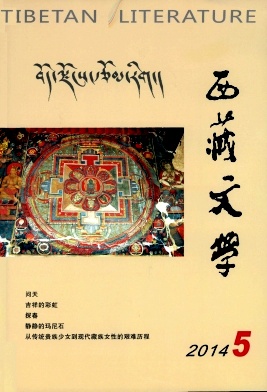 TIBETAN LITERATURE
西藏文学
问天
吉祥的彩虹
探春
静静的玛尼石
从传统贵族少女到现代藏族女性的艰难历程
2014 5